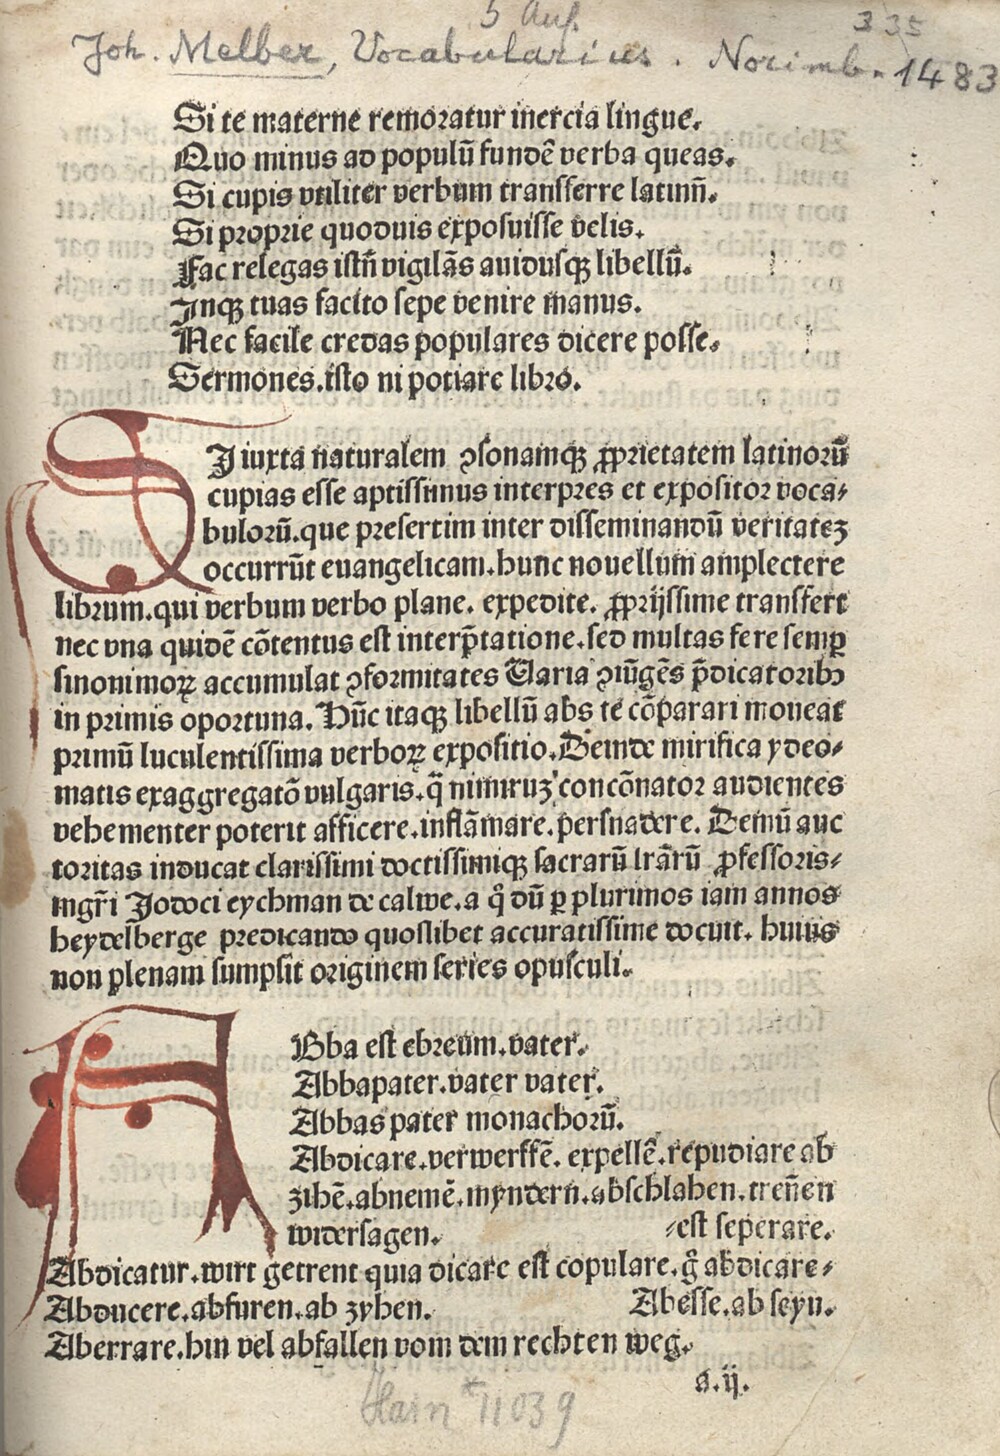 5 Aufl.
335
Joh. Melber, Vocabularius. Norimb. 1483
Si te materne remoratur inercia lingue.
Quo minus ad populū fundē verba queas.
Si cupis vtiliter verbum transferre latinū.
Si proprie quoduis exposuisse velis.
Fac relegas istū vigilās auidusqꝫ libellū.
Inqꝫ tuas facito sepe venire manus.
Nec facile credas populares dicere posse.
Sermones.isto ni potiare libro.
SI iuxta naturalem ꝯsonamqꝫ ꝓprietatem latinorū
cupias esse aptissimus interpres et expositor voca⸗
bulorū.que presertim inter disseminandū veritateꝫ
occurrūt euangelicam.hunc nouellum amplectere
librum.qui verbum verbo plane. expedite. ꝓprijssime transfert
nec vna quidē cōtentus est interp̄tatione.sed multas fere semꝑ
sinonimoꝝ accumulat ꝯformitates Uaria ꝯiūgēs p̄dicatoribꝰ
in primis oportuna. Hūc itaqꝫ libellū abs te cōparari moueat
primū luculentissima verboꝝ expositio. Deinde mirifica ydeo⸗
matis exaggregatō vulgaris.q̄ nimiruꝫ concōnator audientes
vehementer poterit afficere.inflāmare.persuadere. Demū auc
toritas inducat clarissimi doctissimiqꝫ sacrarū lrārū ꝓfessoris⸗
mgr̄i Jodoci eychman de calwe.a q̊ dū ꝑ plurimos iam annos
heydelberge predicando quoslibet accuratissime docuit. huius
non plenam sumpsit originem series opusculi.
ABba est ebreum.vater.
Abbapater.vater vater.
Abbas pater monachorū.
Abdicare.verwerffē. expellē.repudiare ab
zihē.abnemē.myndern.abschlahen.treñen
widersagen. ⸗est seperare.
Abdicatur.wirt getrent quia dicare est copulare.g̊ abdicare⸗
Abducere.abfuren.ab zyhen. Abesse.ab seyn.
Aberrare.hin vel abfallen vom dem rechten weg.
a.ij.
Hain *11039